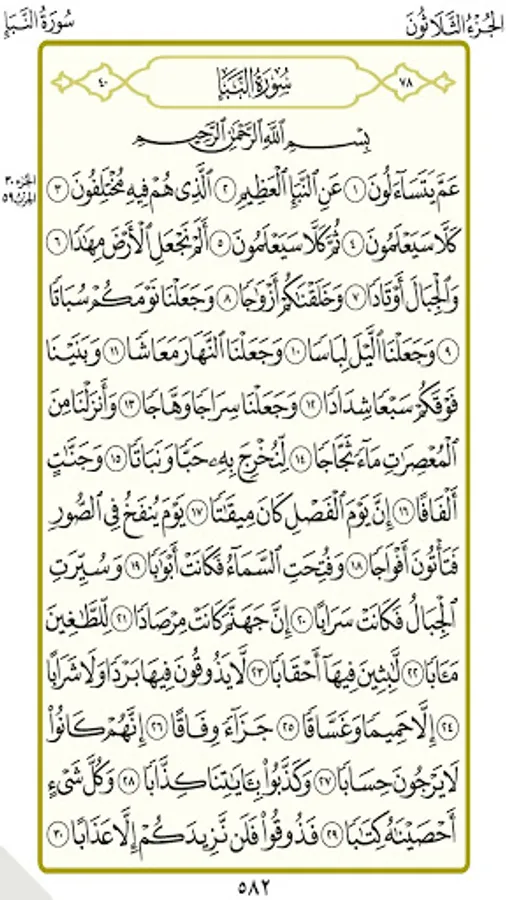 الجُزْءُ الثَّلَاثُونَ سُورَةُ النَّبَإِ
٧٨ سُورَةُ النَّبَإِ ٤٠
بِسْمِ ٱللَّهِ ٱلرَّحْمَٰنِ ٱلرَّحِيمِ
الجزء ٣٠
الحزب ٥٩
عَمَّ يَتَسَآءَلُونَ ١ عَنِ ٱلنَّبَإِ ٱلْعَظِيمِ ٢ ٱلَّذِى هُمْ فِيهِ مُخْتَلِفُونَ ٣
كَلَّا سَيَعْلَمُونَ ٤ ثُمَّ كَلَّا سَيَعْلَمُونَ ٥ أَلَمْ نَجْعَلِ ٱلْأَرْضَ مِهَٰدًا ٦
وَٱلْجِبَالَ أَوْتَادًا ٧ وَخَلَقْنَٰكُمْ أَزْوَٰجًا ٨ وَجَعَلْنَا نَوْمَكُمْ سُبَاتًا
٩ وَجَعَلْنَا ٱلَّيْلَ لِبَاسًا ١٠ وَجَعَلْنَا ٱلنَّهَارَ مَعَاشًا ١١ وَبَنَيْنَا
فَوْقَكُمْ سَبْعًا شِدَادًا ١٢ وَجَعَلْنَا سِرَاجًا وَهَّاجًا ١٣ وَأَنزَلْنَا مِنَ
ٱلْمُعْصِرَٰتِ مَآءً ثَجَّاجًا ١٤ لِّنُخْرِجَ بِهِۦ حَبًّا وَنَبَاتًا ١٥ وَجَنَّٰتٍ
أَلْفَافًا ١٦ إِنَّ يَوْمَ ٱلْفَصْلِ كَانَ مِيقَٰتًا ١٧ يَوْمَ يُنفَخُ فِى ٱلصُّورِ
فَتَأْتُونَ أَفْوَاجًا ١٨ وَفُتِحَتِ ٱلسَّمَآءُ فَكَانَتْ أَبْوَٰبًا ١٩ وَسُيِّرَتِ
ٱلْجِبَالُ فَكَانَتْ سَرَابًا ٢٠ إِنَّ جَهَنَّمَ كَانَتْ مِرْصَادًا ٢١ لِّلطَّٰغِينَ
مَـَٔابًا ٢٢ لَّٰبِثِينَ فِيهَآ أَحْقَابًا ٢٣ لَّا يَذُوقُونَ فِيهَا بَرْدًا وَلَا شَرَابًا
٢٤ إِلَّا حَمِيمًا وَغَسَّاقًا ٢٥ جَزَآءً وِفَاقًا ٢٦ إِنَّهُمْ كَانُوا۟
لَا يَرْجُونَ حِسَابًا ٢٧ وَكَذَّبُوا۟ بِـَٔايَٰتِنَا كِذَّابًا ٢٨ وَكُلَّ شَىْءٍ
أَحْصَيْنَٰهُ كِتَٰبًا ٢٩ فَذُوقُوا۟ فَلَن نَّزِيدَكُمْ إِلَّا عَذَابًا ٣٠
٥٨٢